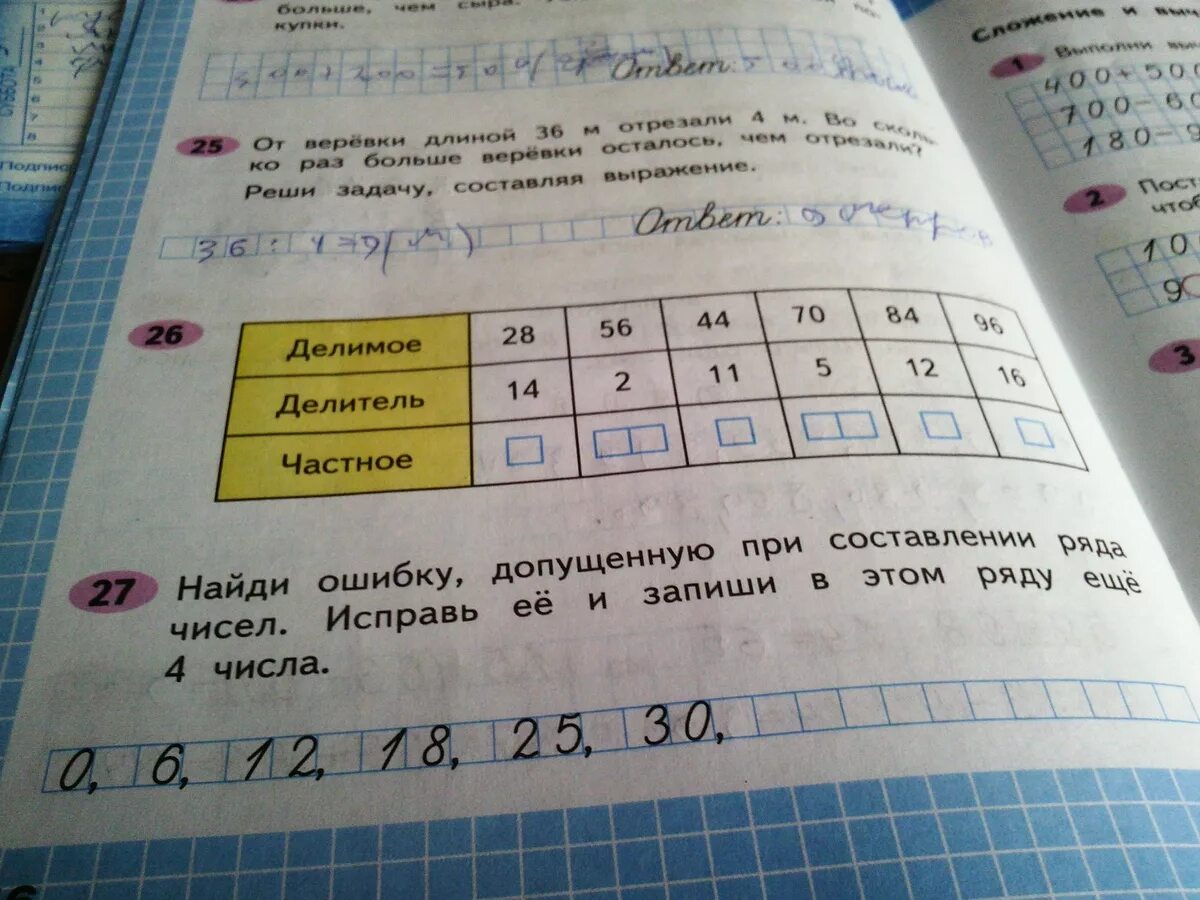 больше, чем сыра.
купки.
300+200=500( Ответ: 5
25 От верёвки длиной 36 м отрезали 4 м. Во сколь-
ко раз больше верёвки осталось, чем отрезали?
Реши задачу, составляя выражение.
36: 4=9( Ответ: 9
26
Делимое 28 56 44 70 84 96
Делитель 14 2 11 5 12 16
Частное
27 Найди ошибку, допущенную при составлении ряда
чисел. Исправь её и запиши в этом ряду ещё
4 числа.
0, 6, 12, 18, 25, 30,
Сложение и выч
1 Выполни вы
400+500
700-60
180-
2 Пост
чтоб
10
90
3
Подпис
Подпис